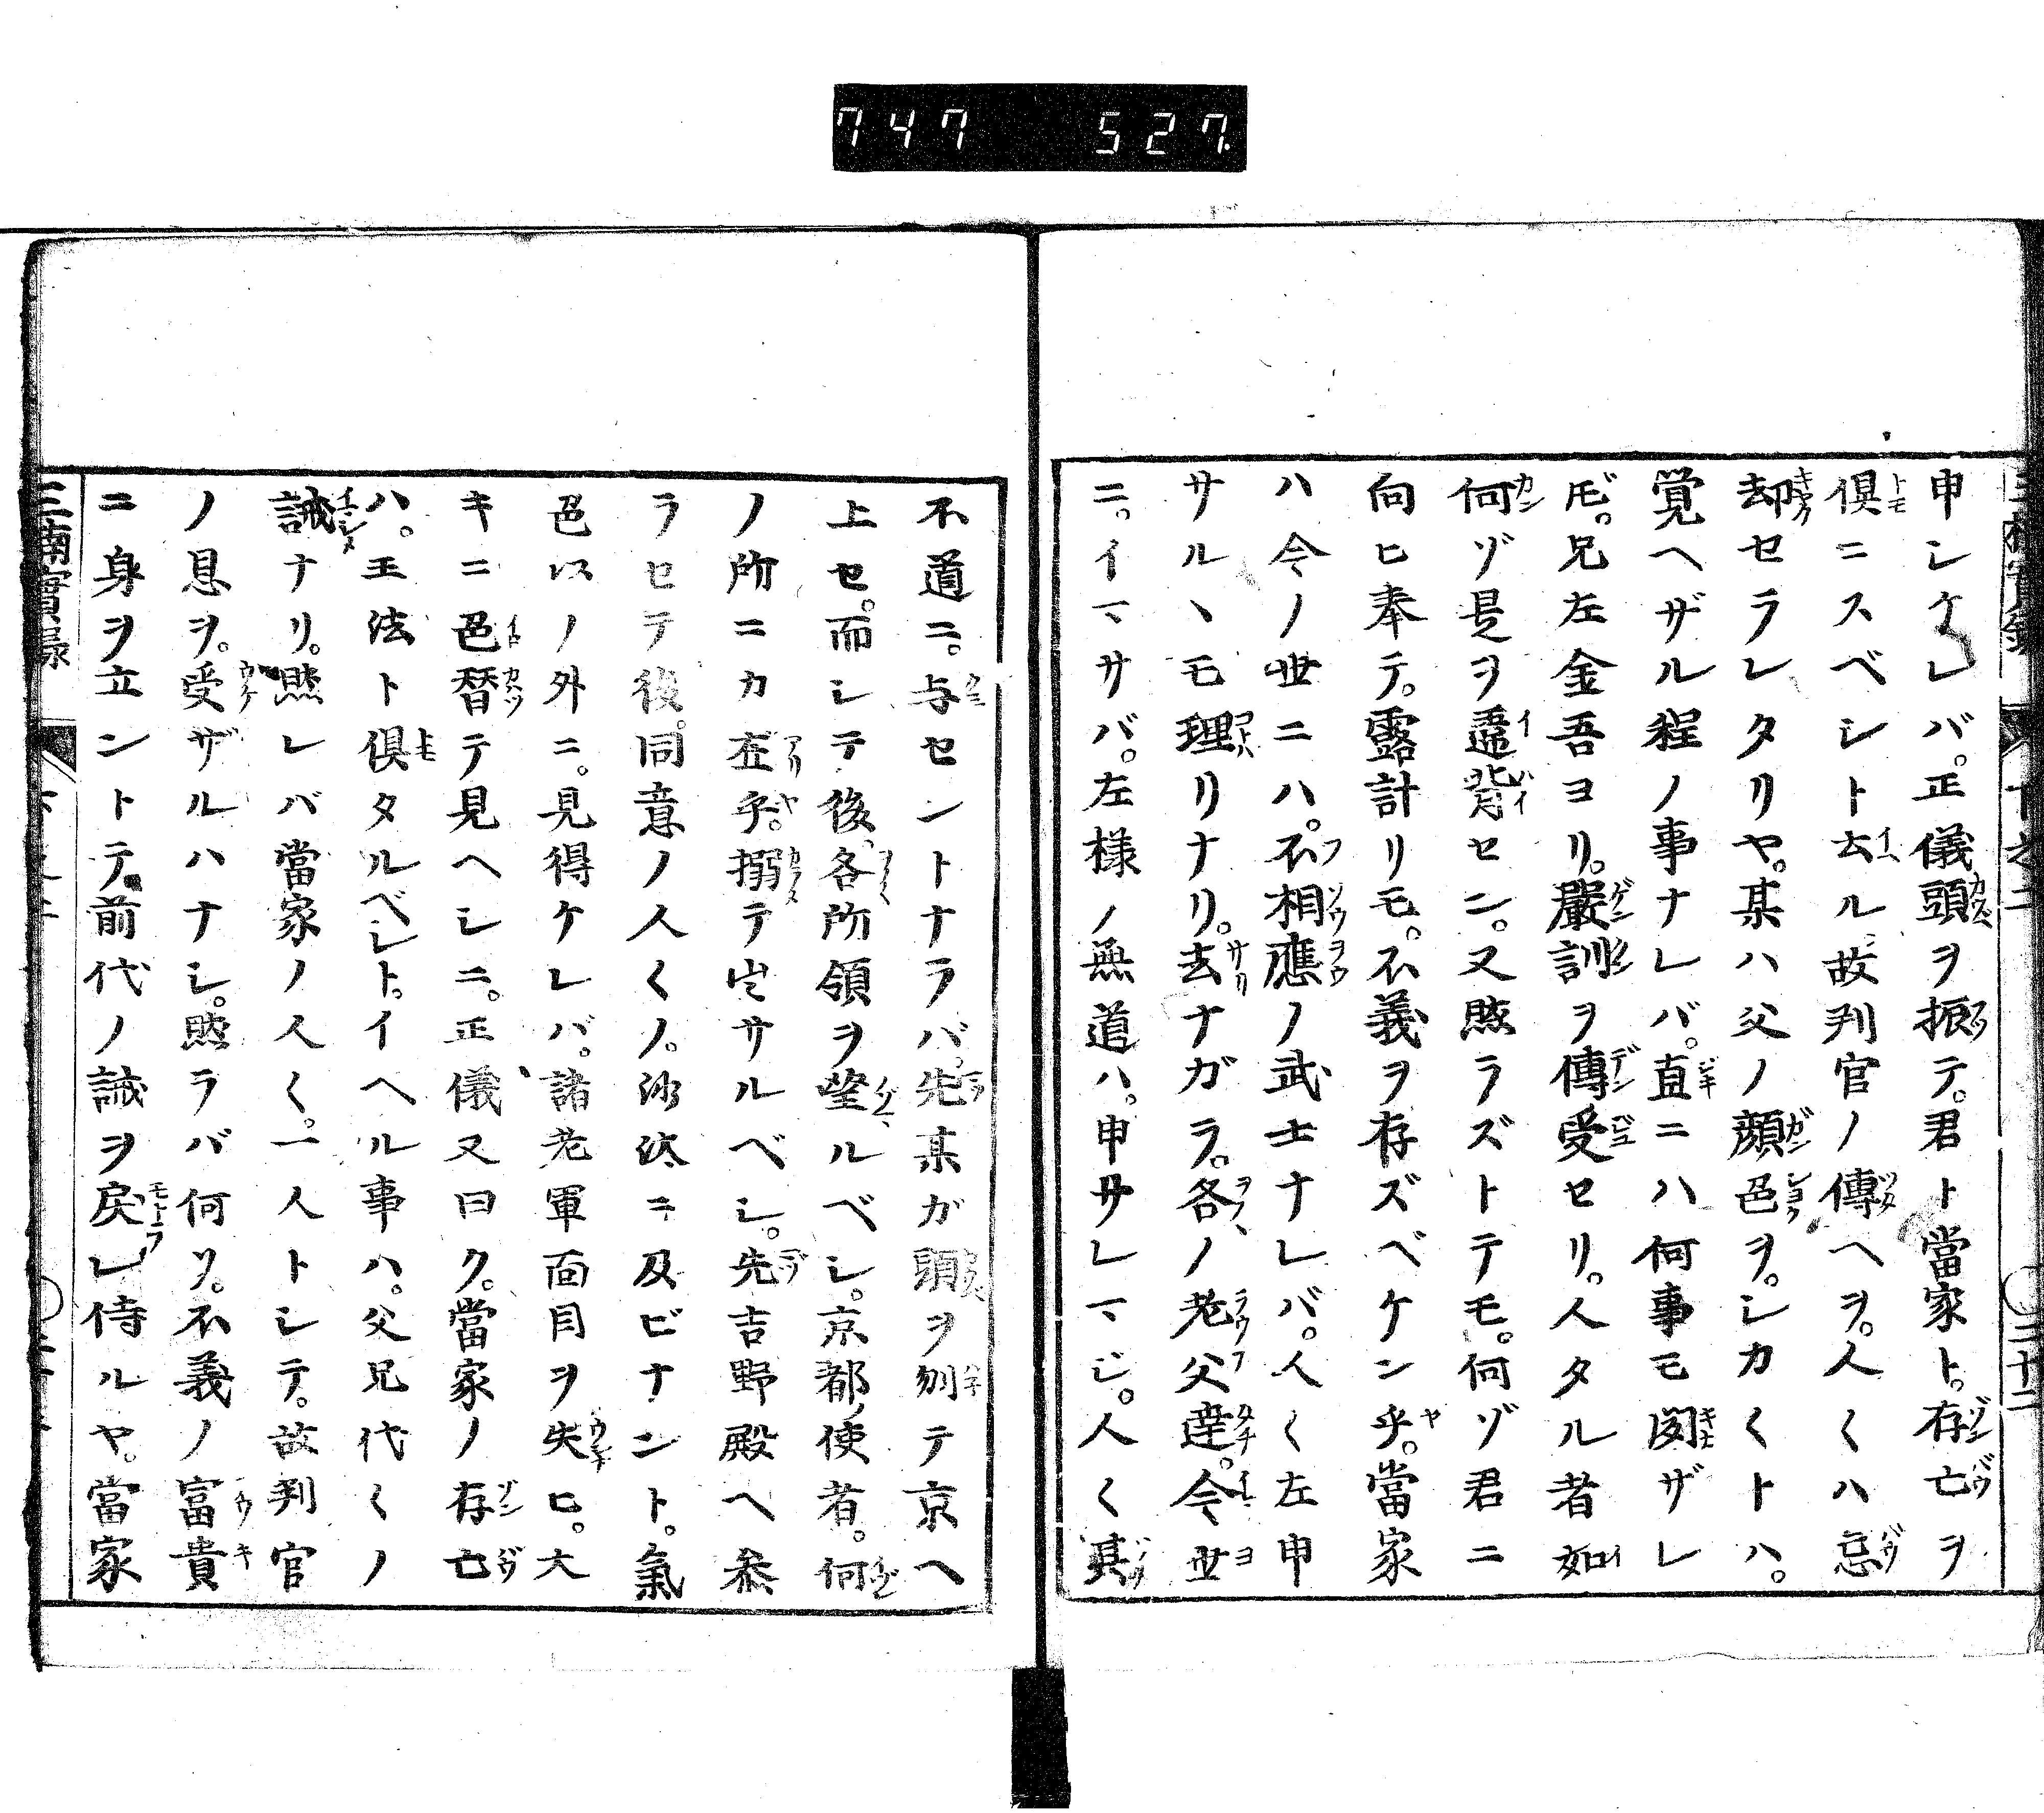 747 527
申シケレバ。正儀頭ヲ振テ。君ト當家ト。存亡ヲ
倶ニスベシト云ル。故判官ノ傳ヘヲ。人〱ハ忘
却セラレタリヤ。某ハ父ノ顔色ヲ。シカ〱トハ。
覚ヘザル程ノ事ナレバ。直ニハ何事モ聞ザレ
𪜈。兄左金吾ヨリ。嚴訓ヲ傳受セリ。人タル者如
何ゾ是ヲ違背セン。又然ラズトテモ。何ゾ君ニ
向ヒ奉テ。露計リモ。不義ヲ存ズベケン乎。當家
ハ今ノ世ニハ。不相應ノ武士ナレバ。人〱左申
サルヽモ理リナリ。去ナガラ。各ノ老父達。今世
ニ。イマサバ。左様ノ無道ハ。申サレマジ。人〱其
不道ニ。与セントナラバ。先某ガ頭ヲ刎テ京ヘ
上セ。而シテ後、各所領ヲ望ルベシ。京都ノ使者。何
ノ所ニカ在乎。搦テ出サルベシ。先吉野殿ヘ参
ラセテ後。同意ノ人〱ノ。沙汰ニ及ビナント。氣
色以ノ外ニ。見得ケレバ。諸老軍面目ヲ失ヒ。大
キニ色替テ見ヘシニ。正儀又曰ク。當家ノ存亡
ハ。王法ト倶タルベシト。イヘル事ハ。父兄代〱ノ
誡ナリ。然レバ當家ノ人〱。一人トシテ。故判官
ノ息ヲ。受ザルハナシ。然ラバ何ゾ。不義ノ富貴
ニ身ヲ立ントテ。前代ノ誡ヲ戻レ侍ルヤ。當家
三楠實録